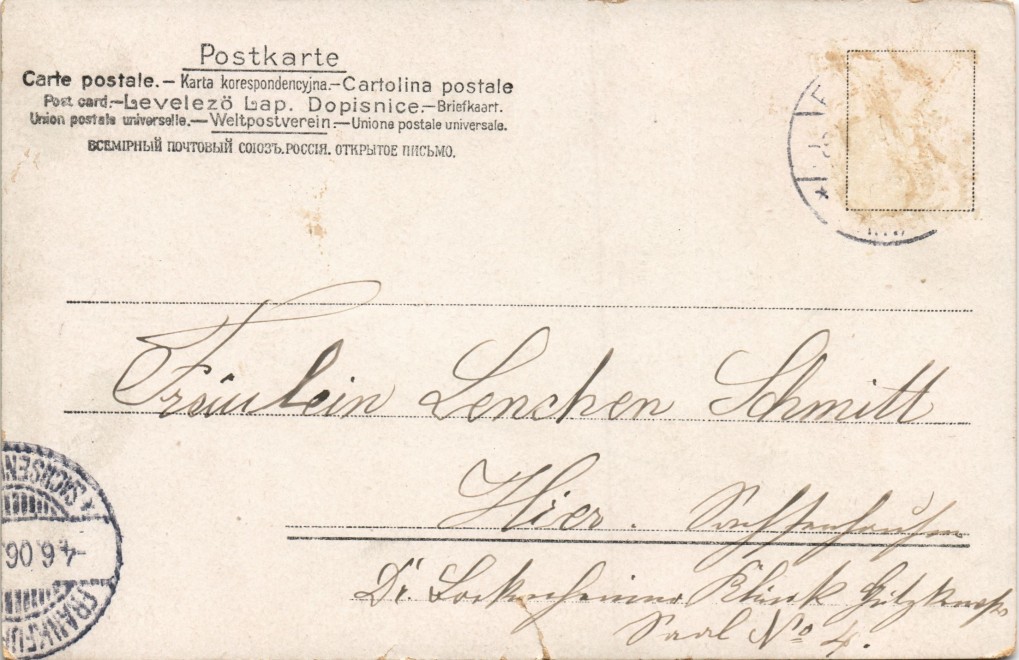 Postkarte
Carte postale.–Karta korespondencyjna.–Cartolina postale
Post card.–Levelező Lap. Dopisnice.–Briefkaart.
Union postale universelle.–Weltpostverein.–Unione postale universale.
ВСЕМІРНЫЙ ПОЧТОВЫЙ СОЮЗЪ.РОССІЯ. ОТКРЫТОЕ ПИСЬМО.
Fräulein Lenchen Schmitt
Hier. Sachsenhausen
Dr. Klinik
Saal No 4.
FRANKFUR
4.6.06.
SACHSENH